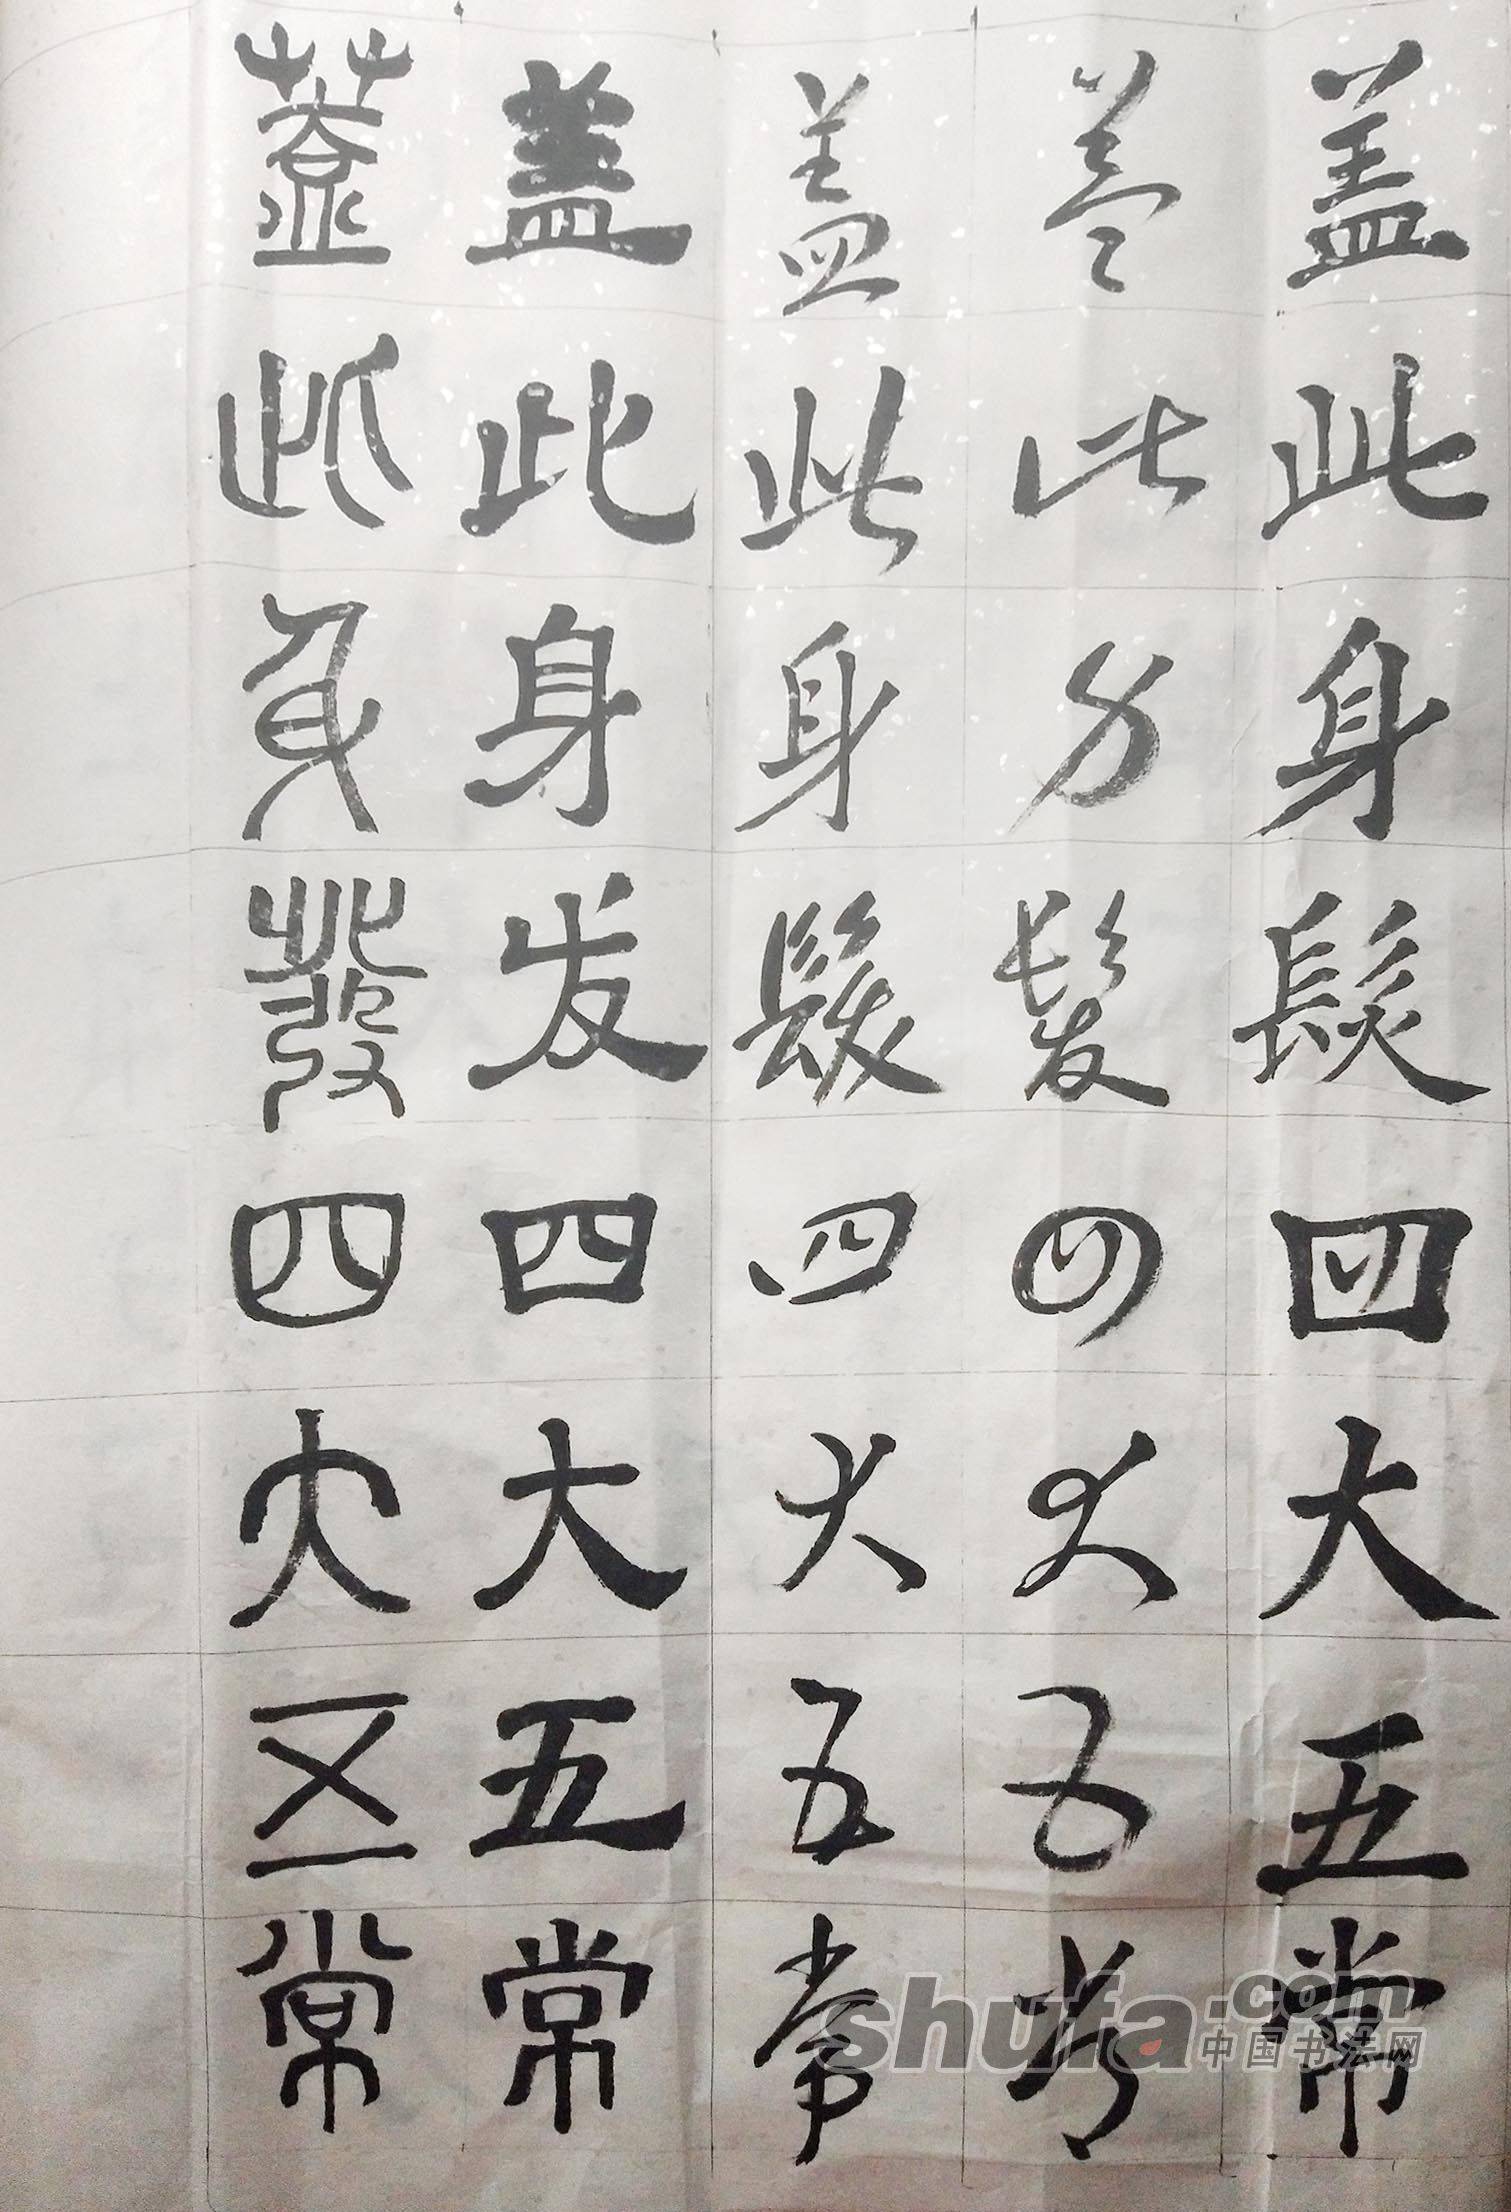 盖此身髮四大五常
盖此身髮四大五常
盖此身髮四大五常
盖此身发四大五常
蓋此身發四大五常
shufa.com
中国书法网